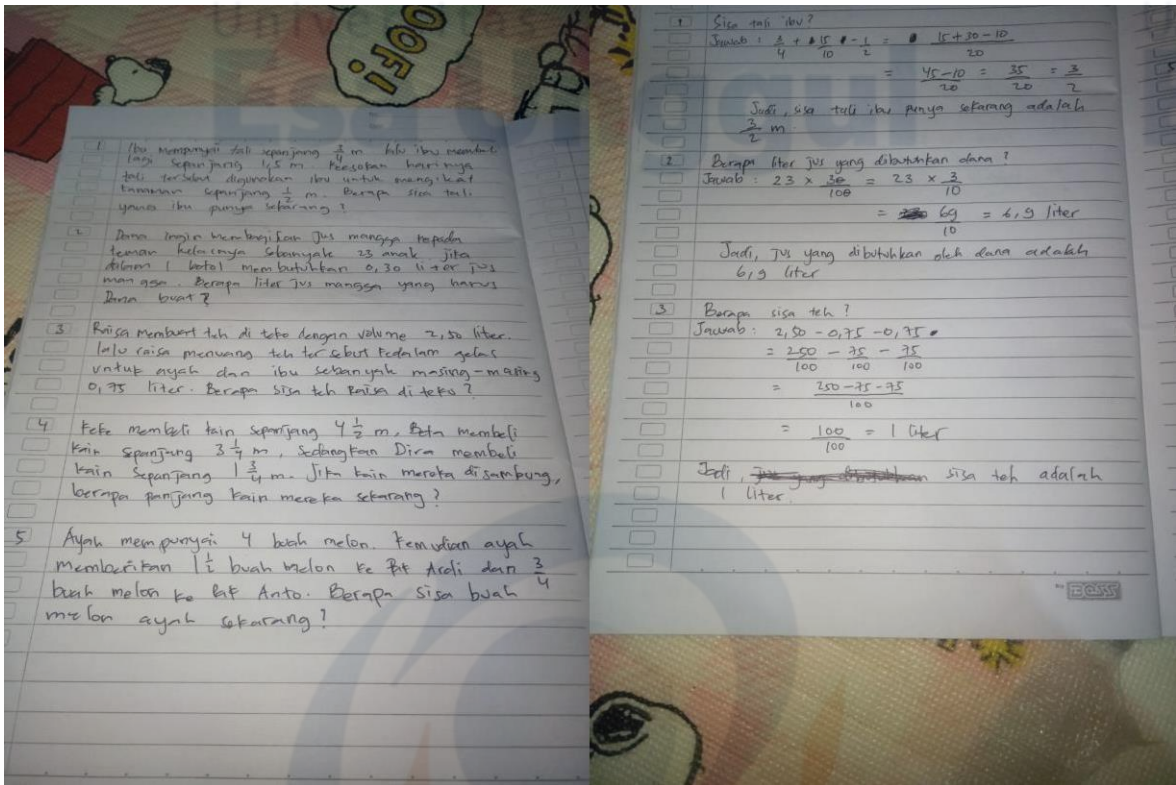 Esa Unggul
OOFi
1 Ibu mempunyai tali sepanjang 3/4 m. lalu ibu membeli
lagi sepanjang 1,5 m keesokan harinya
tali tersebut digunakan ibu untuk mengikat
tanaman sepanjang 1/2 m. Berapa sisa tali
yang ibu punya sekarang?
2 Dana ingin membagikan jus mangga kepada
teman kelasnya sebanyak 23 anak jika
dalam 1 botol membutuhkan 0,30 liter jus
mangga. Berapa liter jus mangga yang harus
Dana buat?
3 Raisa membuat teh di teko dengan volume 2,50 liter.
lalu raisa menuang teh tersebut kedalam gelas
untuk ayah dan ibu sebanyak masing-masing
0,75 liter. Berapa sisa teh Raisa di teko?
4 Keke membeli kain sepanjang 4 1/2 m, Beta membeli
kain sepanjang 3 1/4 m, sedangkan Dira membeli
kain sepanjang 1 3/4 m. Jika kain mereka disambung,
berapa panjang kain mereka sekarang?
5 Ayah mempunyai 4 buah melon. Kemudian ayah
memberikan 1 1/2 buah melon ke Pak Ardi dan 3/4
buah melon ke Pak Anto. Berapa sisa buah
melon ayah sekarang?
1 Sisa tali ibu?
Jawab : 3/4 + 15/10 - 1/2 = 15+30-10/20
= 45-10/20 = 35/20 = 3/2
Jadi, sisa tali ibu punya sekarang adalah
3/2 m
2 Berapa liter jus yang dibutuhkan dana?
Jawab : 23 × 30/100 = 23 × 3/10
= 69/10 = 6,9 liter
Jadi, jus yang dibutuhkan oleh dana adalah
6,9 liter
3 Berapa sisa teh?
Jawab : 2,50 - 0,75 - 0,75
= 250/100 - 75/100 - 75/100
= 250-75-75/100
= 100/100 = 1 liter
Jadi, sisa teh adalah
1 liter.
BOSS